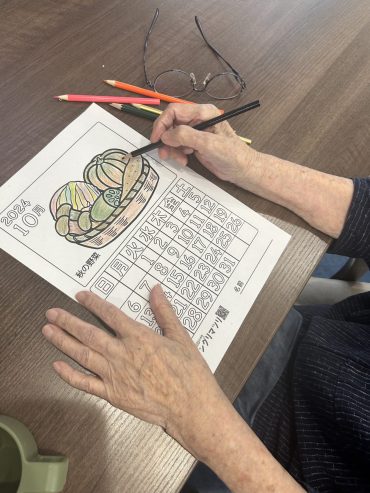 2024
10月
秋の野菜
日 月 火 水 木 金 土
1 2 3 4 5
6 7 8 9 10 11 12
13 15 16 17 18 19
22 23 24 25 26
28 29 30 31
名前
ングリマツリ